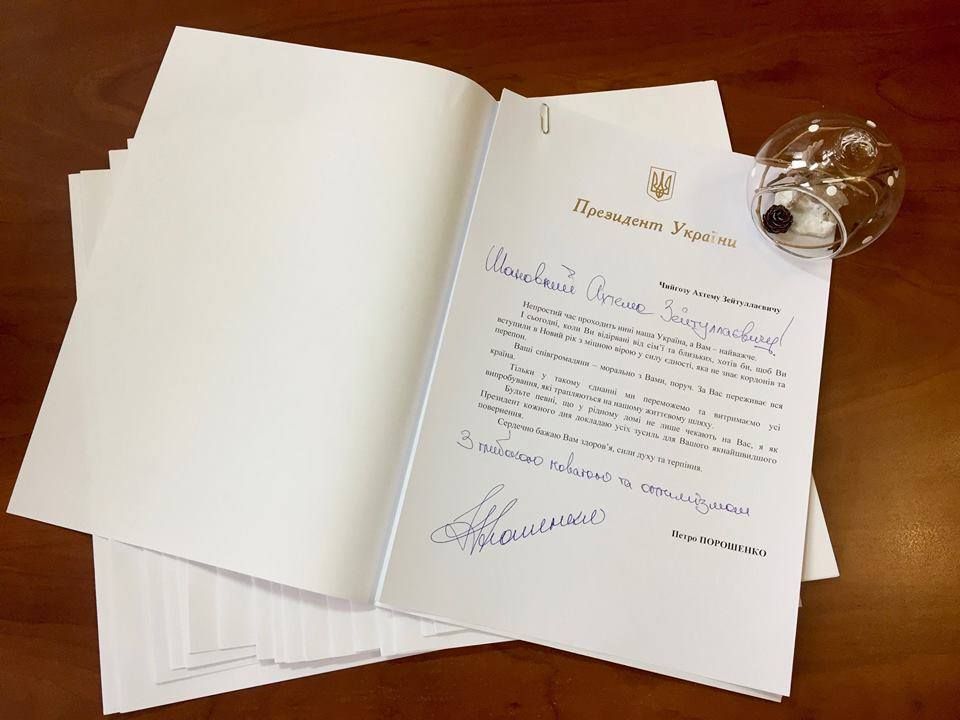 Президент України
Чийгозу Ахтему Зейтуллаєвичу
Шановний Ахтеме Зейтуллаєвичу!
Непростий час проходить нині наша Україна, а Вам – найважче.
І сьогодні, коли Ви відірвані від сім'ї та близьких, хотів би, щоб Ви
вступили в Новий рік з міцною вірою у силу єдності, яка не знає кордонів та
перепон.
Ваші співгромадяни – морально з Вами, поруч. За Вас переживає вся
країна.
Тільки у такому єднанні ми переможемо та витримаємо усі
випробування, які трапляються на нашому життєвому шляху.
Будьте певні, що у рідному домі не лише чекають на Вас, я як
Президент кожного дня докладаю усіх зусиль для Вашого якнайшвидшого
повернення.
Сердечно бажаю Вам здоров'я, сили духу та терпіння.
З глибокою повагою та оптимізмом
Петро ПОРОШЕНКО